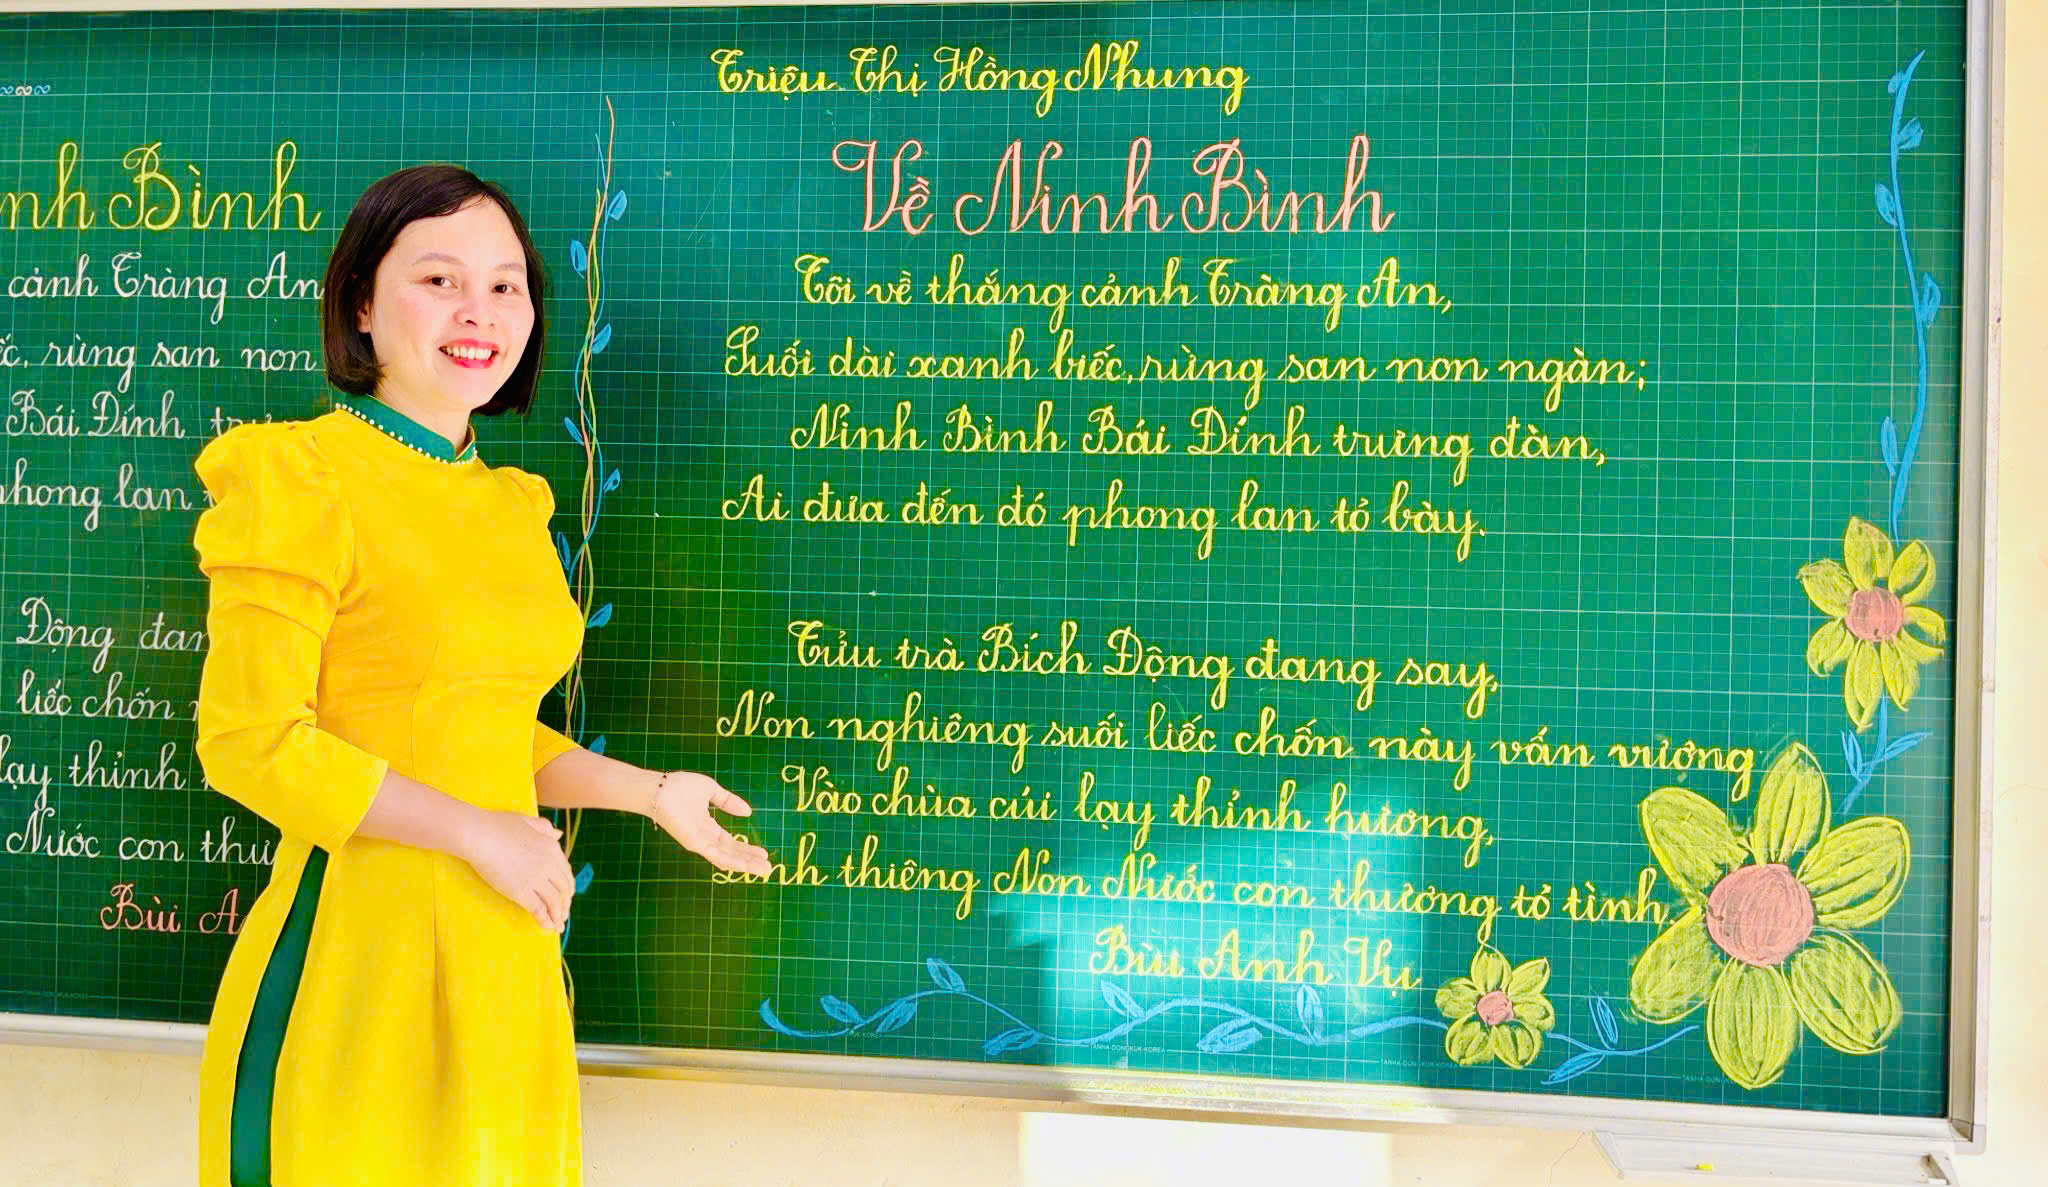 nh Bình
cảnh Tràng An
ếc, rừng san non
Bái Đính
phong lan
Động đan
liếc chốn
lạy thỉnh
Nước con thư
Bùi A
Triệu Thị Hồng Nhung
Về Ninh Bình
Tôi về thắng cảnh Tràng An,
Suối dài xanh biếc, rừng san non ngàn;
Ninh Bình Bái Đính trưng đàn,
Ai đưa đến đó phong lan tỏ bày.
Tửu trà Bích Động đang say,
Non nghiêng suối liếc chốn này vấn vương
Vào chùa cúi lạy thỉnh hương,
Linh thiêng Non Nước con thương tỏ tình.
Bùi Anh Vụ
TANHA-DONGKUK-KOREA